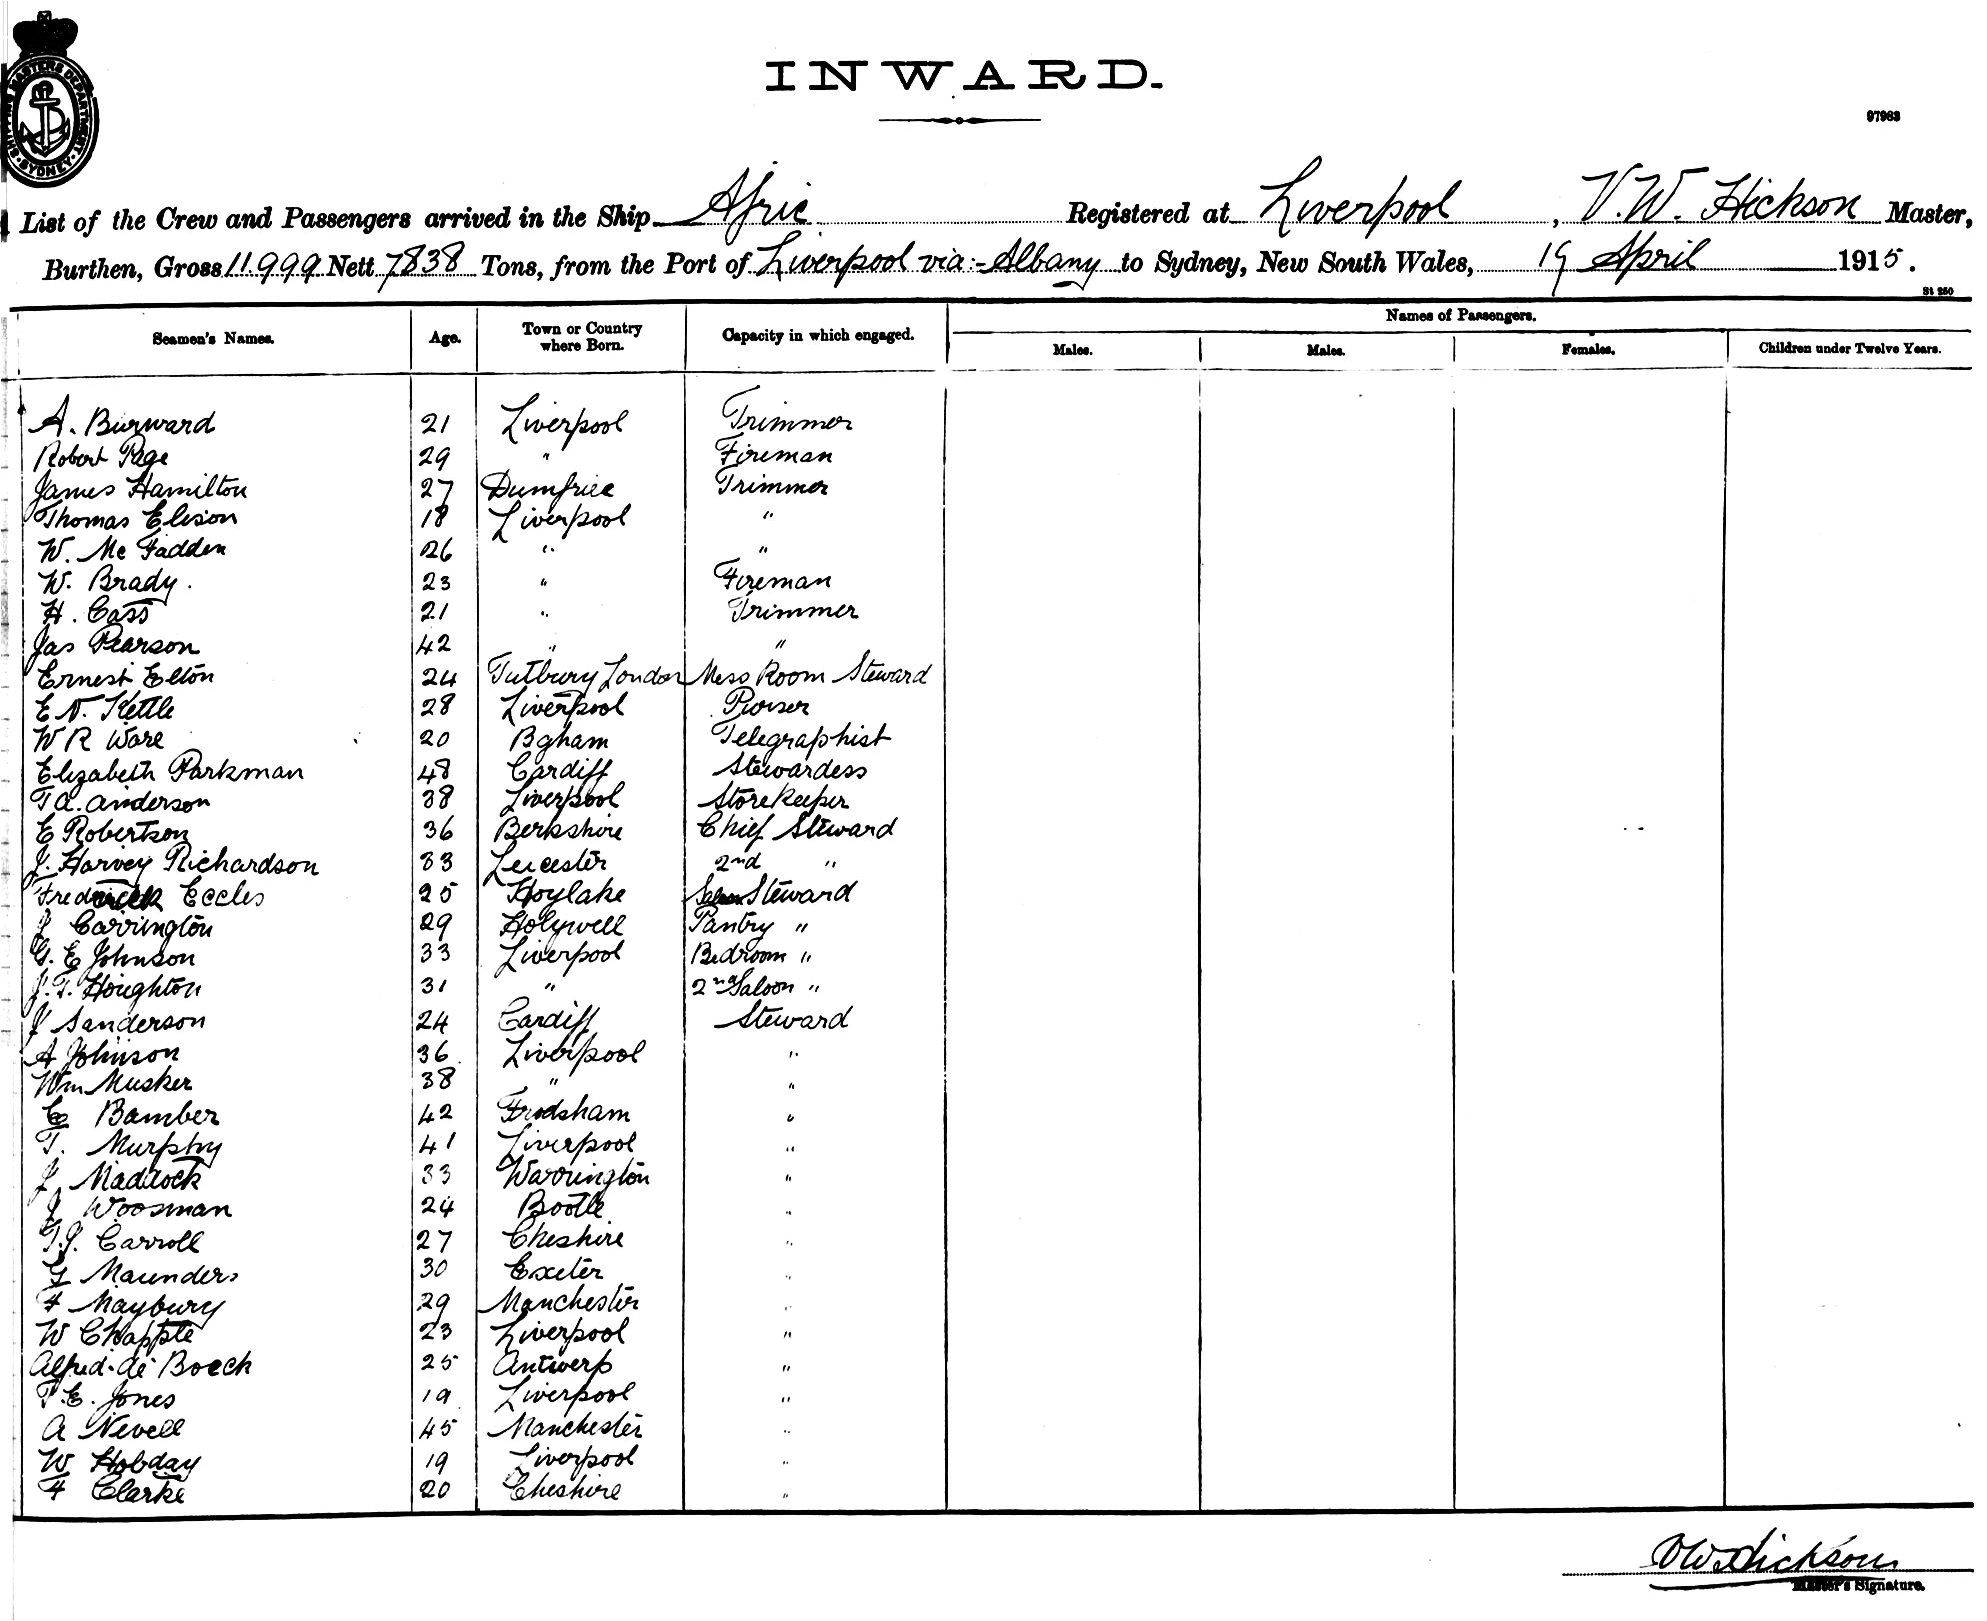 SHIPPING MASTERS DEPARTMENT SYDNEY
INWARD.
97963
List of the Crew and Passengers arrived in the Ship Afric Registered at Liverpool, V. W. Hickson Master,
Burthen, Gross 11,999 Nett 7838 Tons, from the Port of Liverpool via:- Albany to Sydney, New South Wales, 19 April 1915.
St 250
Seamen's Names. Age. Town or Country where Born. Capacity in which engaged. Names of Passengers.
Males. Males. Females. Children under Twelve Years.
A. Burward 21 Liverpool Trimmer
Robert Page 29 " Fireman
James Hamilton 27 Dumfries Trimmer
Thomas Elison 18 Liverpool "
W. Mc Fadden 26 " "
W. Brady. 23 " Fireman
H. Cass 21 " Trimmer
Jas Pearson 42 " "
Ernest Elton 24 Tutbury London Mess Room Steward
E N. Kettle 28 Liverpool Purser
W R Ware 20 Bgham Telegraphist
Elizabeth Parkman 48 Cardiff Stewardess
T a. anderson 38 Liverpool Storekeeper
E Robertson 36 Berkshire Chief Steward
J. Harvey Richardson 33 Leicester 2nd "
Frederick Eccles 25 Hoylake Saloon Steward
J Carrington 29 Holywell Pantry "
G. E Johnson 33 Liverpool Bedroom "
J. T. Houghton 31 " 2nd Saloon "
J Sanderson 24 Cardiff Steward
A Johnson 36 Liverpool "
Wm Musker 38 " "
E Bamber 42 Frodsham "
T. Murphy 41 Liverpool "
J Maddock 33 Warrington "
J Woosman 24 Bootle "
T. J. Carroll 27 Cheshire "
G Maunders 30 Exeter "
F Maybury 29 Manchester "
W Chapple 23 Liverpool "
Alfred de Boeck 25 Antwerp "
T. E. Jones 19 Liverpool "
A Nevell 45 Manchester "
W Hobday 19 Liverpool "
F Clarke 20 Cheshire "
VW Hickson
Master's Signature.